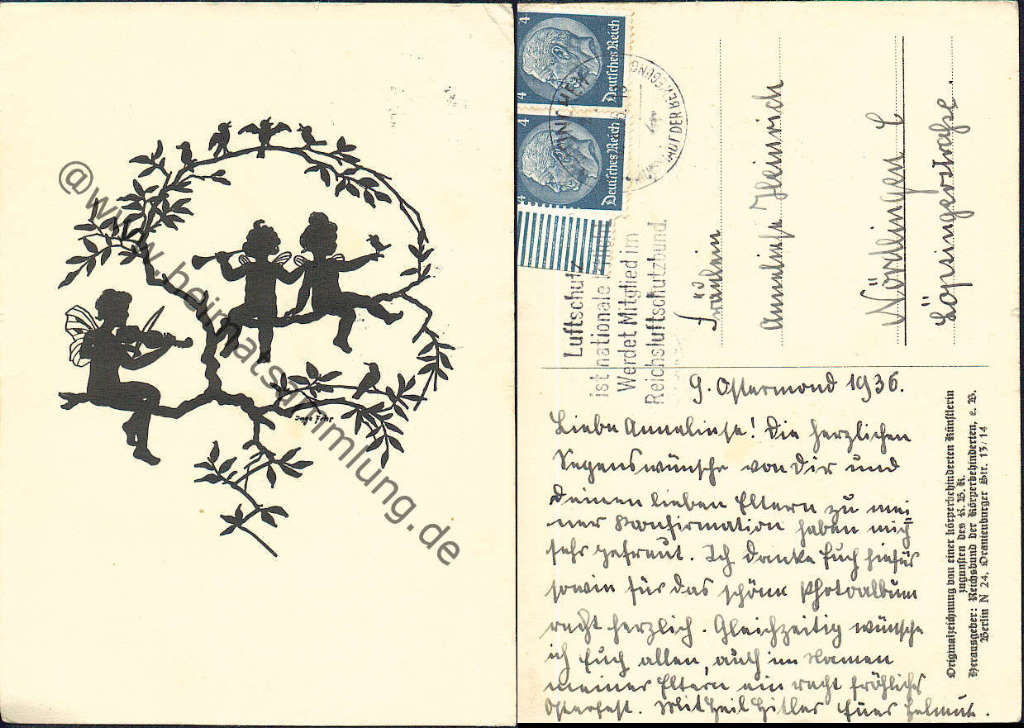 @www.heimatsammlung.de
Deutsches Reich
4
4
Deutsches Reich
4
4
MÜNCHEN
HAUPTSTADT DER BEWEGUNG
Luftschutz
ist nationale Pflicht
Werdet Mitglied im
Reichsluftschutzbund.
Fräulein
Anneliese Heinrich
Nördlingen
Löpsingerstraße.
9. Ostermond 1936.
Liebe Anneliese! Die herzlichen
Segenswünsche von Dir und
Deinen lieben Eltern zu mei
ner Konfirmation haben mich
sehr gefreut. Ich danke Euch hiefür
sowie für das schöne Photoalbum
recht herzlich. Gleichzeitig wünsche
ich Euch allen, auch im Namen
meiner Eltern ein recht fröhliches
Osterfest. Mit Heil Hitler Euer Helmut.
Originalzeichnung von einer körperbehinderten Künstlerin
zugunsten des R. B. K.
Herausgeber: Reichsbund der Körperbehinderten, e. V.
Berlin N 24, Oranienburger Str. 13/14